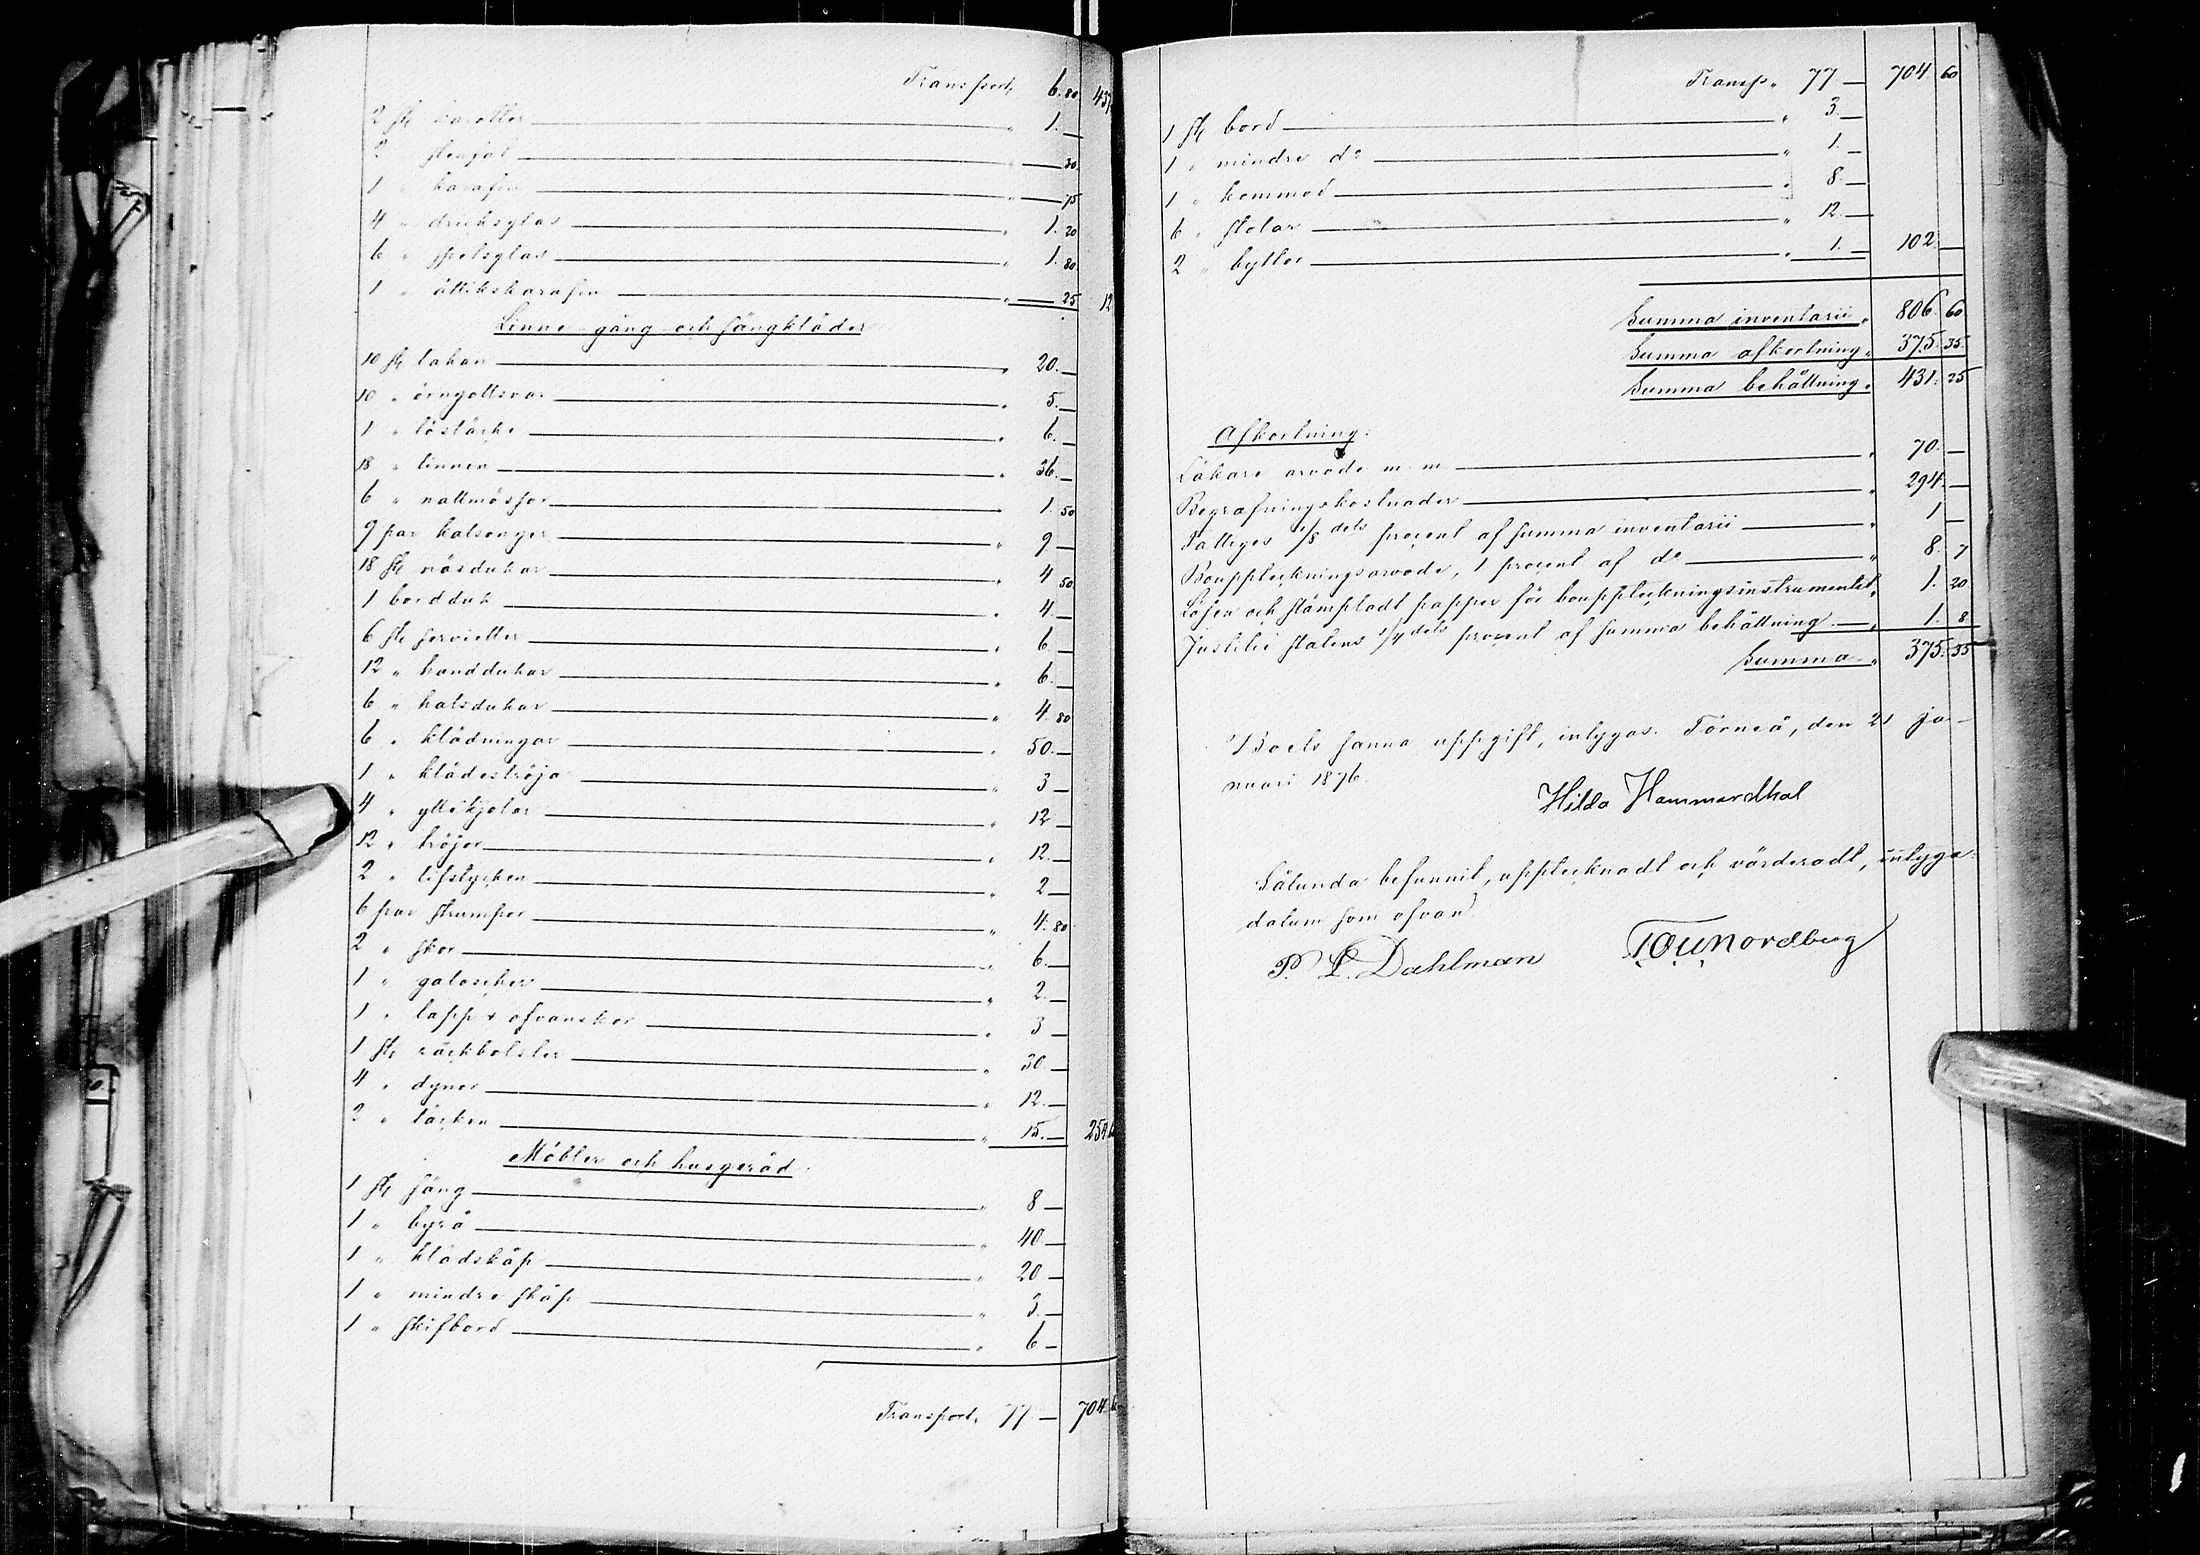 Transport, 6. 80 437
2 st karotter — " 1. —
2 " stenfat — " — 30
1 " karafin — " — 75
4 " dricksglas — " 1. 20
6 " spetsglas — " 1. 80
1 " ättikskarafin — " — 25 12
Linne- gång och sängkläder
10 st lakan — " 20. —
10 " örngottsvar — " 5. —
1 " löstäcke — " 6. —
18 " linnen — " 36. —
6 " nattmössor — " 1. 50
9 par kalsonger — " 9 —
18 st näsdukar — " 4 50
1 bordduk — " 4. —
6 st servietter — " 6. —
12 " handdukar — " 6. —
6 " halsdukar — " 4. 80
6 " klädningar — " 50. —
1 " klädeströja — " 3 —
4 " yllekjolar — " 12 —
12 " tröjor — " 12. —
2 " lifstycken — " 2 —
6 par strumpor — " 4. 80
2 " skor — " 6. —
1 " galoscher — " 2. —
1 " lapp & ofvanskor — " 3 —
1 st räckbolster — " 30 —
4 " dynor — " 12. —
2 " täcken — " 15. — 254
Möbler och husgeråd.
1 st säng — " 8 —
1 " byrå — " 40. —
1 " klädskåp — " 20 —
1 " mindre skåp — " 3. —
1 " skifbord — " 6 —
Transport, 77 — 704. 6
Transp. 77 — 704 60
1 st bord — " 3. —
1 " mindre d:o — " 1. —
1 " kommod — " 8. —
6 " stolar — " 12. —
2 " byttor — " 1. — 102. —
Summa inventarii, 806. 60
Summa afkortning, 375. 35.
Summa behållning, 431. 25
Afkortning.
Läkare arvode m. m. — " 70. —
Begrafningskostnader — " 294. —
Fattiges 1/8 dels procent af summa inventarii — " 1 —
Bouppteckningsarvode, 1 procent af d:o — " 8. 7
Lösen och stämpladt papper för bouppteckningsinstrumentet, 1. 20
Justitii stalens 1/4 dels procent af summa behållning. — " 1. 8
Summa " 375. 35
Boets sanna uppgift, intygas. Torneå, den 21 ja-
nuari 1876.
Hilda Hammardhal
Sålunda befunnit, upptecknadt och värderadt, intyga
datum som ofvan
P. L. Dahlman Nordberg